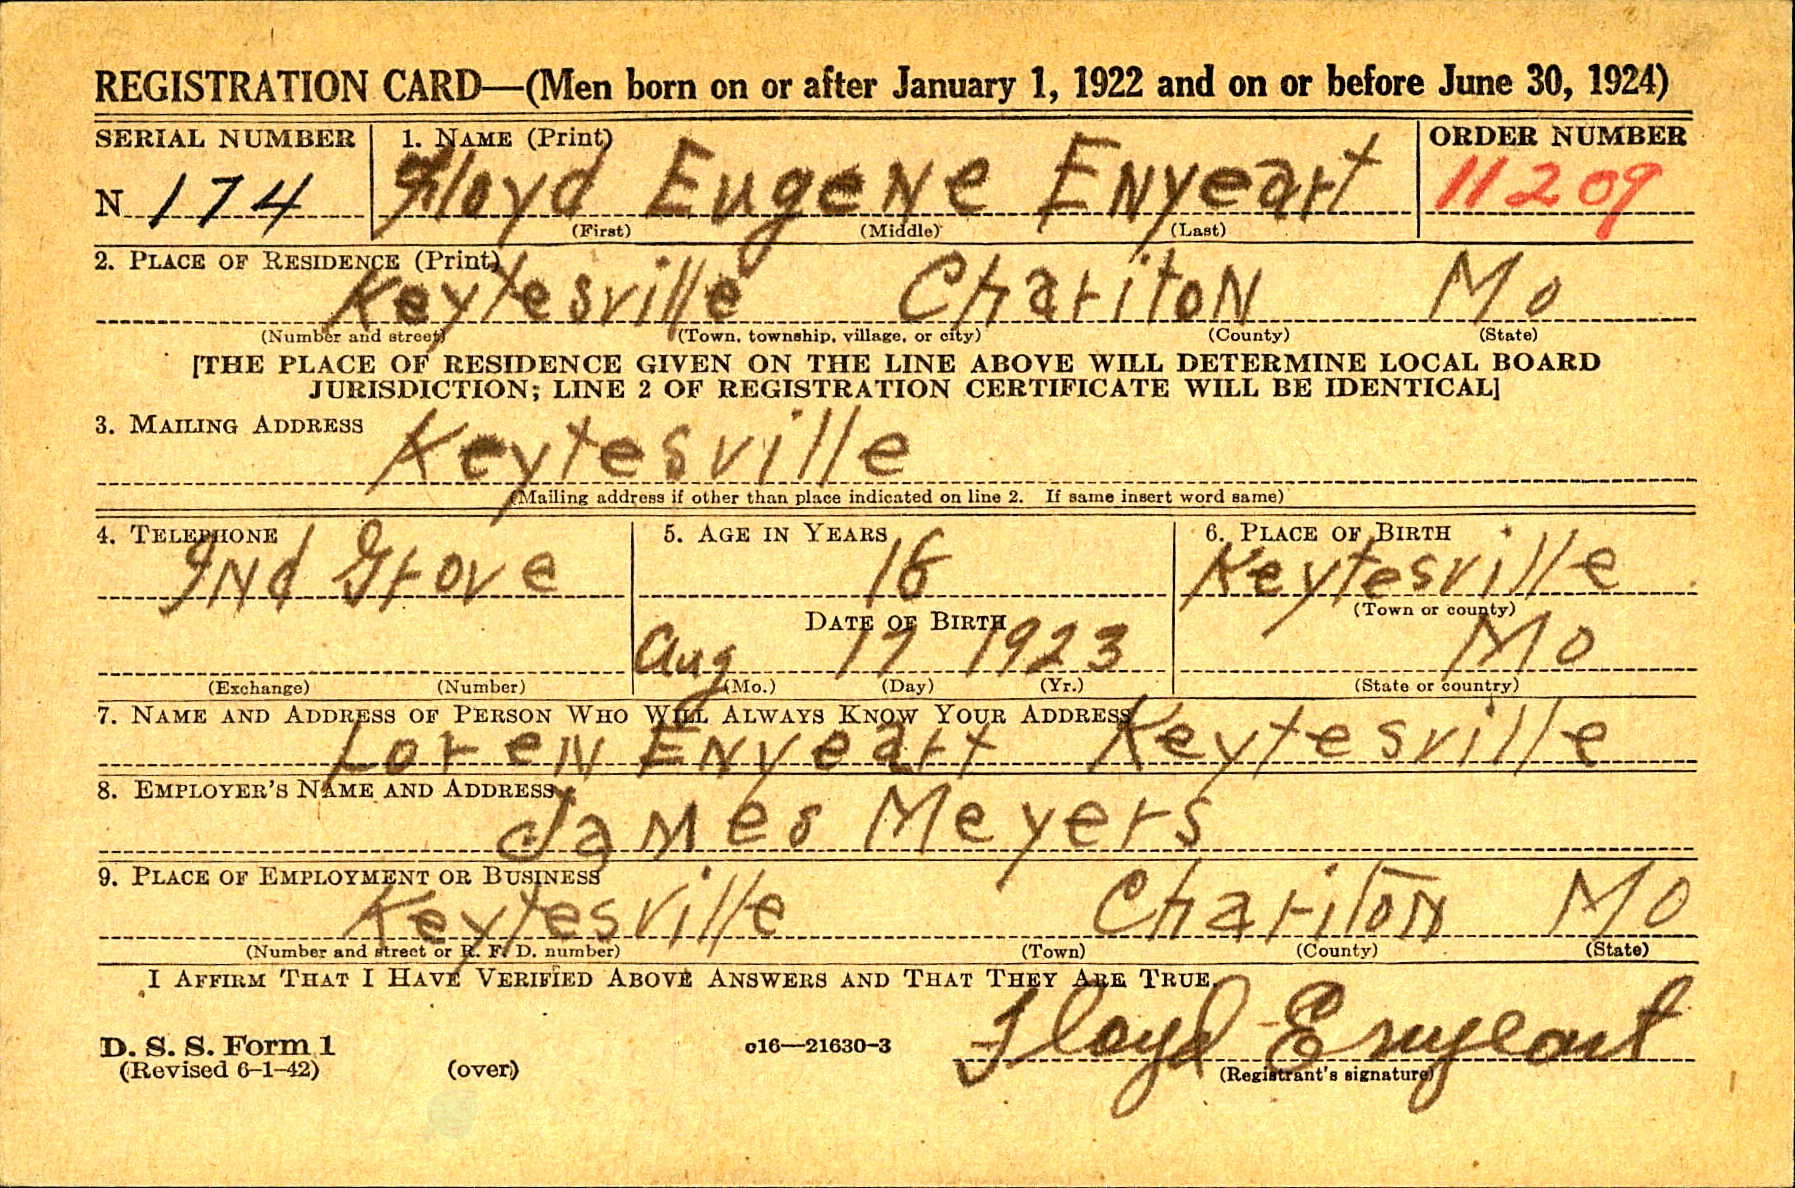 REGISTRATION CARD—(Men born on or after January 1, 1922 and on or before June 30, 1924)
SERIAL NUMBER 1. NAME (Print) ORDER NUMBER
N 174 Floyd Eugene Enyeart 11209
(First) (Middle) (Last)
2. PLACE OF RESIDENCE (Print)
Keytesville Chariton Mo
(Number and street) (Town, township, village, or city) (County) (State)
[THE PLACE OF RESIDENCE GIVEN ON THE LINE ABOVE WILL DETERMINE LOCAL BOARD
JURISDICTION; LINE 2 OF REGISTRATION CERTIFICATE WILL BE IDENTICAL]
3. MAILING ADDRESS
Keytesville
(Mailing address if other than place indicated on line 2. If same insert word same)
4. TELEPHONE 5. AGE IN YEARS 6. PLACE OF BIRTH
Ind Grove 18 Keytesville
(Town or county)
DATE OF BIRTH
Aug 17 1923 Mo
(Exchange) (Number) (Mo.) (Day) (Yr.) (State or country)
7. NAME AND ADDRESS OF PERSON WHO WILL ALWAYS KNOW YOUR ADDRESS
Loren Enyeart Keytesville
8. EMPLOYER'S NAME AND ADDRESS
James Meyers
9. PLACE OF EMPLOYMENT OR BUSINESS
Keytesville Chariton Mo
(Number and street or R. F. D. number) (Town) (County) (State)
I AFFIRM THAT I HAVE VERIFIED ABOVE ANSWERS AND THAT THEY ARE TRUE.
D. S. S. Form 1
(Revised 6-1-42) (over) c16—21630-3 Floyd Enyeart
(Registrant's signature)